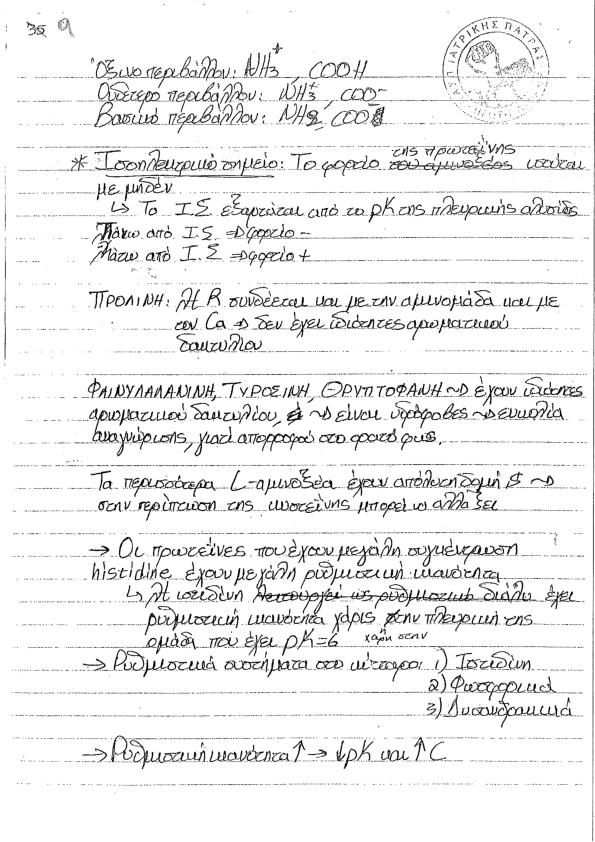 35 9
ΑΥΠ ΙΑΤΡΙΚΗΣ ΠΑΤΡΑΣ
Όξινο περιβάλλον: NH3+, COOH
Ουδέτερο περιβάλλον: NH3+, COO-
Βασικό περιβάλλον: NH2, COO
* Ισοηλεκτρικό σημείο: Το φορτίο της πρωτεΐνης του αμινοξέος ισούται
με μηδέν
↳ Το Ι.Σ εξαρτάται από το pK της πλευρικής αλυσίδας
Πάνω από Ι.Σ ⇒ φορτίο -
Κάτω από Ι.Σ ⇒ φορτίο +
ΠΡΟΛΙΝΗ: Η R συνδέεται και με την αμινομάδα και με
τον Ca ⇒ δεν έχει ιδιότητες αρωματικού
δακτυλίου
ΦΑΙΝΥΛΑΛΑΝΙΝΗ, ΤΥΡΟΣΙΝΗ, ΘΡΥΠΤΟΦΑΝΗ ~> έχουν ιδιότητες
αρωματικού δακτυλίου, ~> είναι υδρόφοβες ~> ευκολία
αναγνώρισης, γιατί απορροφά στο ορατό φως.
Τα περισσότερα L-αμινοξέα έχουν απόλυτη δομή S ~>
στην περίπτωση της κυστεΐνης μπορεί να αλλάξει
→ Οι πρωτεΐνες που έχουν μεγάλη συγκέντρωση
histidine έχουν μεγάλη ρυθμιστική ικανότητα
↳ Η ιστιδίνη λειτουργεί ως ρυθμιστικό διάλυ έχει
ρυθμιστική ικανότητα χάρις στην πλευρική της
ομάδα που έχει pK=6 χάρη στην
→ Ρυθμιστικά συστήματα στο κύτταρο: 1) Ιστιδίνη
2) Φωσφορικά
3) Δισανθρακικά
→ Ρυθμιστική ικανότητα ↑ → ↓pK και ↑C